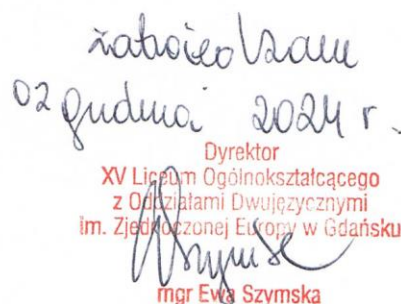 zatwierdzam
02 grudnia 2024 r.
Dyrektor
XV Liceum Ogólnokształcącego
z Oddziałami Dwujęzycznymi
im. Zjednoczonej Europy w Gdańsku
mgr Ewa Szymska